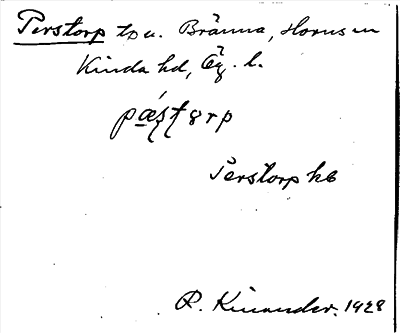 Perstorp tp u. Bränna, Horns sn
Kinda hd, Ög. l.
pæ̀ștørp
Perstorp hb
R. Kinander. 1928